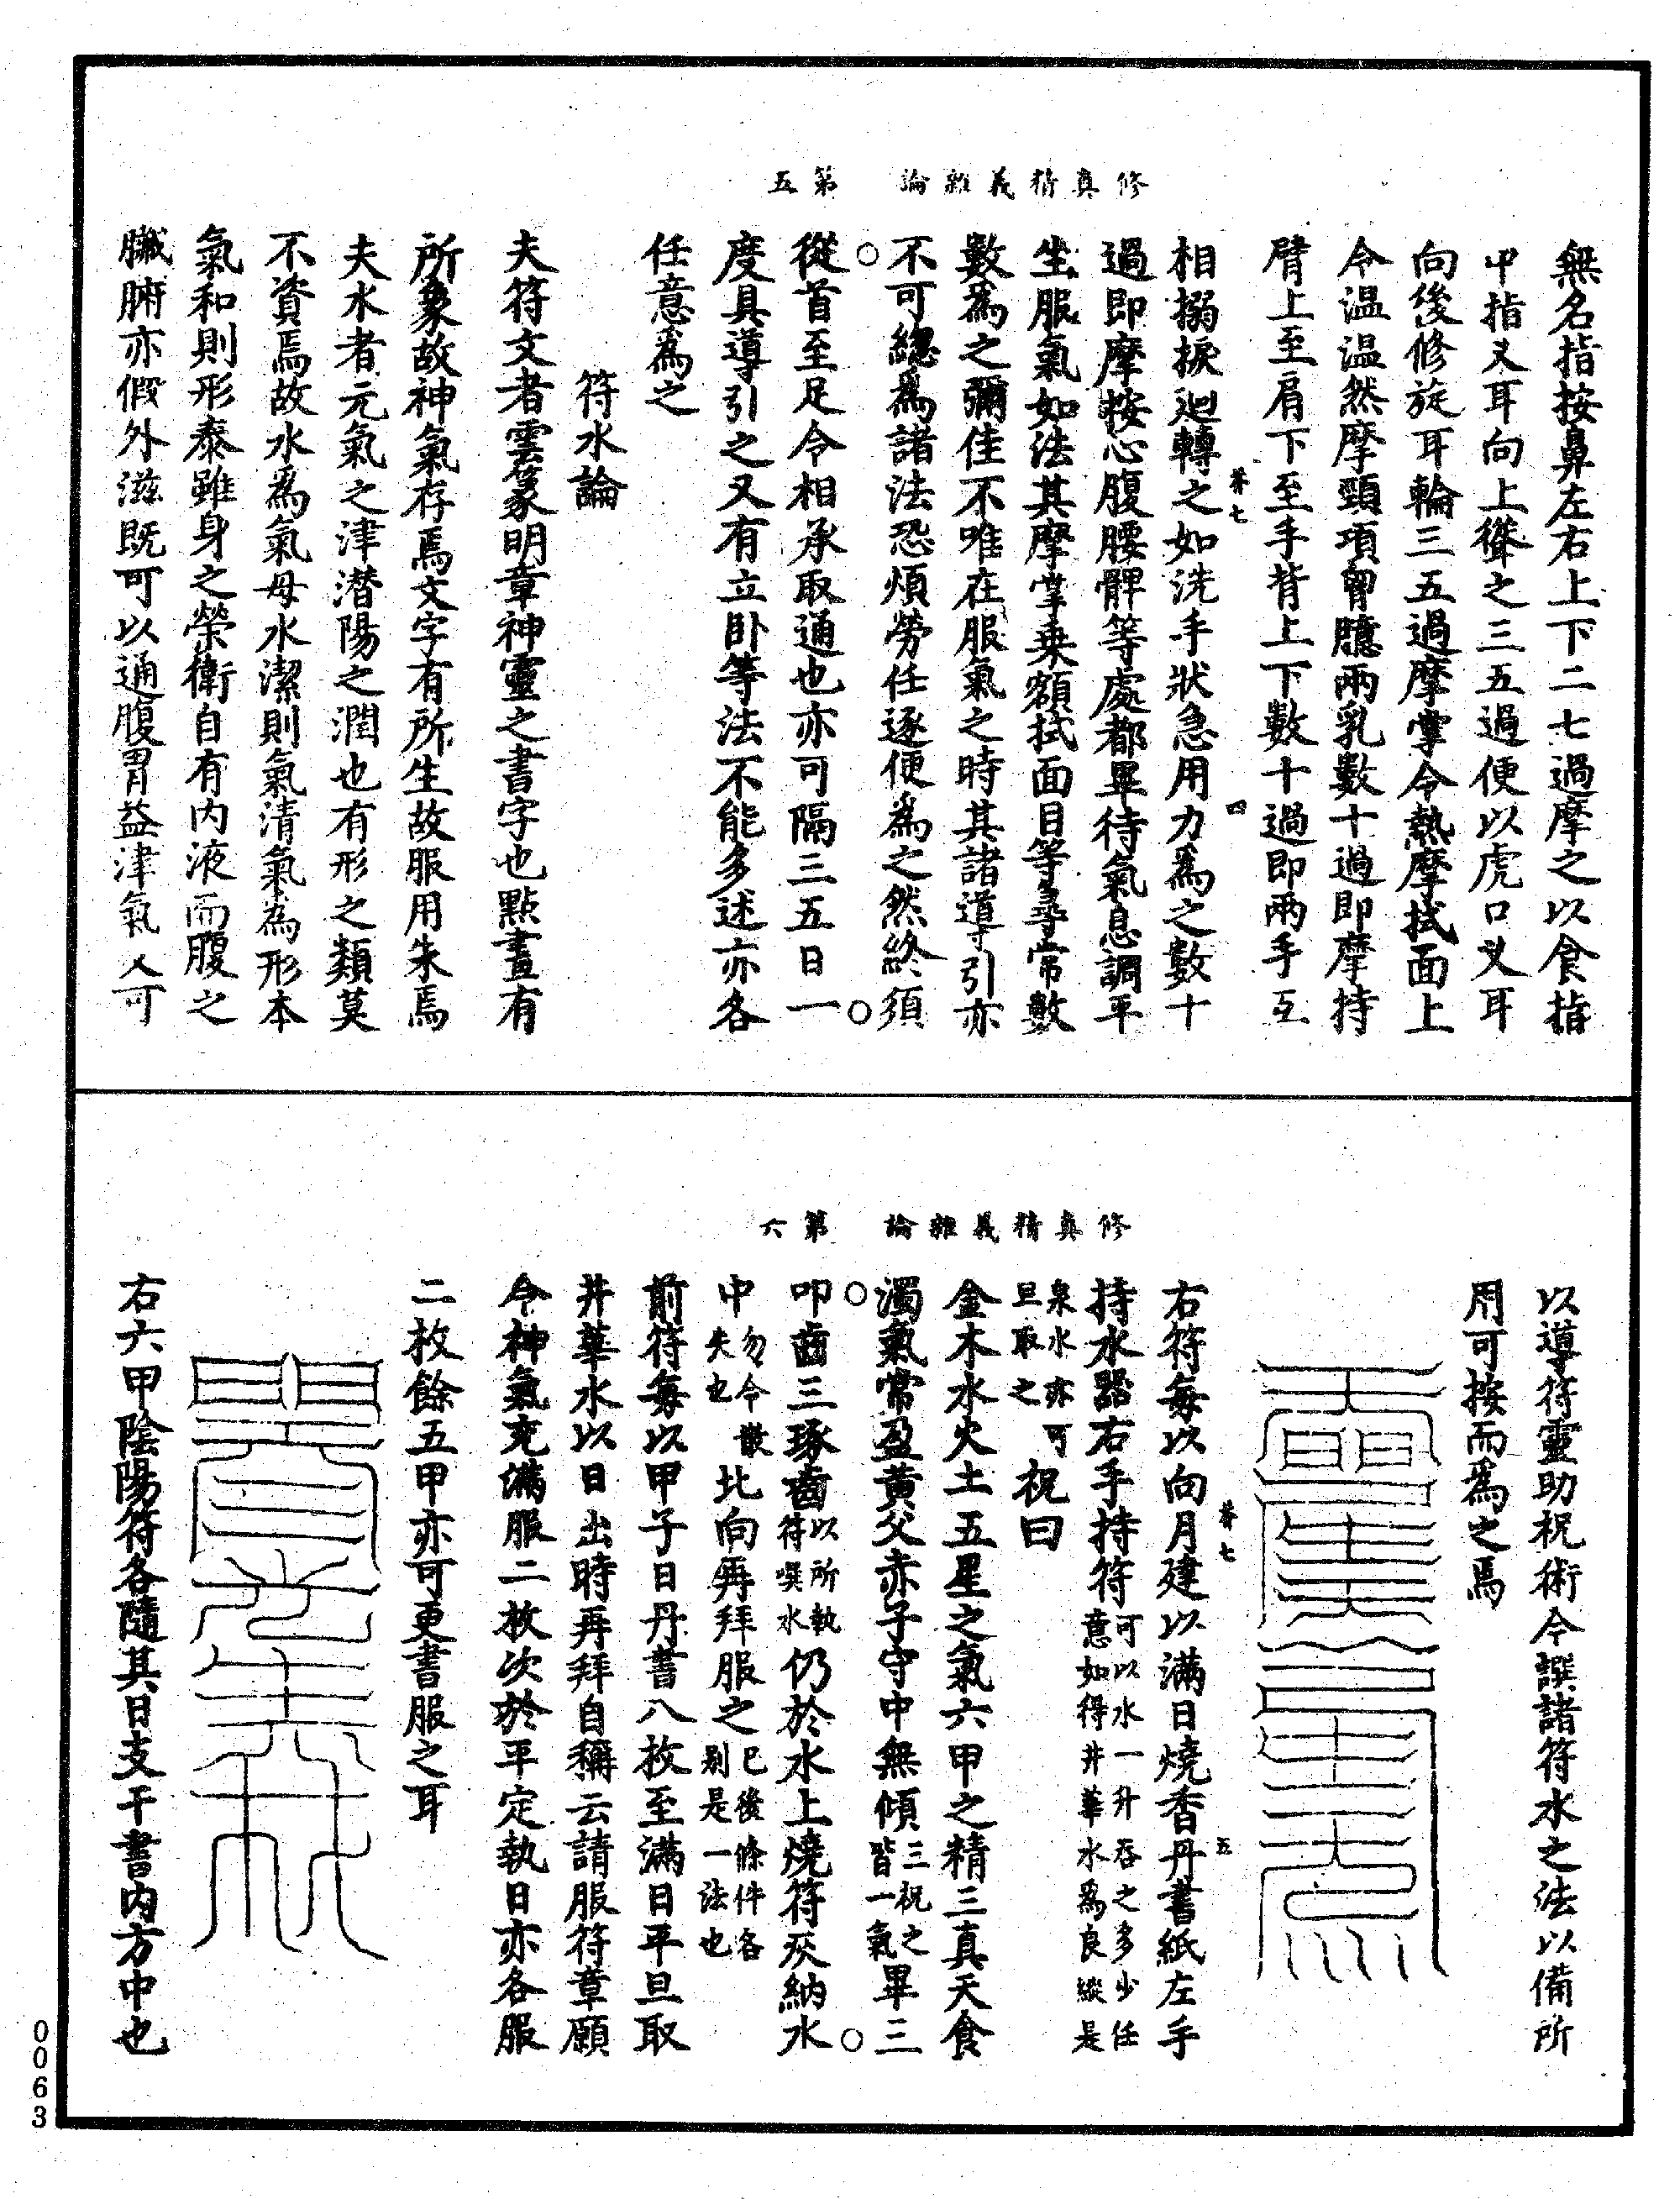 修真精義雜論　第五
無名指按鼻左右上下二七過摩之以食指
中指叉耳向上從之三五過便以虎口叉耳
向後修旋耳輪三五過摩掌令熱摩拭面上
令温温然摩頸項胷臆兩乳數十過即摩持
臂上至肩下至手背上下數十過即兩手互
相搦捩迴轉之如洗手狀急用力爲之數十
過即摩按心腹腰髀等處都畢待氣息調平
生服氣如法其摩掌乗額拭面目等尋常數
數爲之彌佳不唯在服氣之時其諸導引亦
不可緫爲諸法恐煩勞任逐便爲之然終須
從首至足令相承取通也亦可隔三五日一
度具導引之又有立卧等法不能多述亦各
任意爲之
符水論
夫符文者雲篆明章神靈之書字也點畫有
所象故神氣存焉文字有所生故服用朱焉
夫水者元氣之津潜陽之潤也有形之類莫
不資焉故水爲氣母水潔則氣清氣為形本
氣和則形泰雖身之榮衛自有内液而腹之
臟腑亦假外滋既可以通腹胃益津氣又可
芥七
四
修真精義雜論　第六
以導符靈助祝術今譔諸符水之法以備所
用可按而爲之焉
右符每以向月建以滿日燒香丹書紙左手
持水器右手持符可以水一升吞之多少任
意如得井華水爲良縱是
泉水亦可
旦取之祝曰
金木水火土五星之氣六甲之精三真天食
濁氣常盈黄父赤子守中無傾三祝之
皆一氣畢三
叩齒三琢齒以所執
符噀水仍於水上燒符灰納水
中勿令散
失也北向再拜服之已後條件各
别是一法也
前符每以甲子日丹書八枚至滿日平旦取
井華水以日出時再拜自稱云請服符章願
令神氣充滿服二枚次於平定執日亦各服
二枚餘五甲亦可更書服之耳
右六甲陰陽符各隨其日支干書内方中也
芥七
五
0063